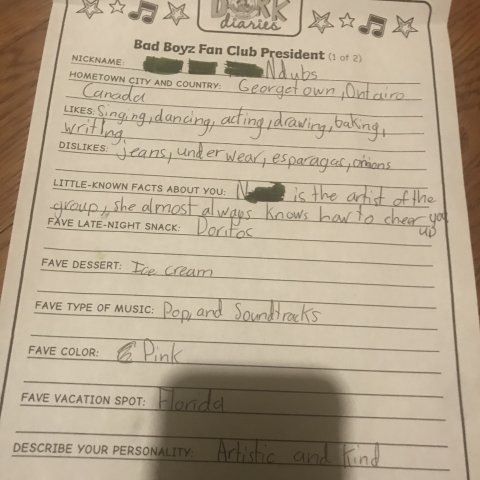 DORK
diaries
Bad Boyz Fan Club President (1 of 2)
NICKNAME: Ndubs
HOMETOWN CITY AND COUNTRY: Georgetown, Ontairo
Canada
LIKES: Singing, dancing, acting, drawing, baking,
writing
DISLIKES: jeans, underwear, esparagas, onions
LITTLE-KNOWN FACTS ABOUT YOU: N is the artist of the
group, she almost always knows how to cheer you
up
FAVE LATE-NIGHT SNACK: Doritos
FAVE DESSERT: Ice cream
FAVE TYPE OF MUSIC: Pop, and Soundtracks
FAVE COLOR: Pink
FAVE VACATION SPOT: Florida
DESCRIBE YOUR PERSONALITY: Artistic and kind